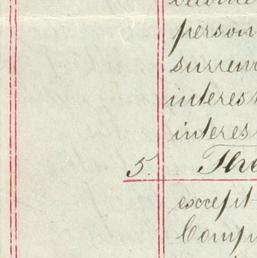 person
surren
interes
interes
5. The
except
Comp